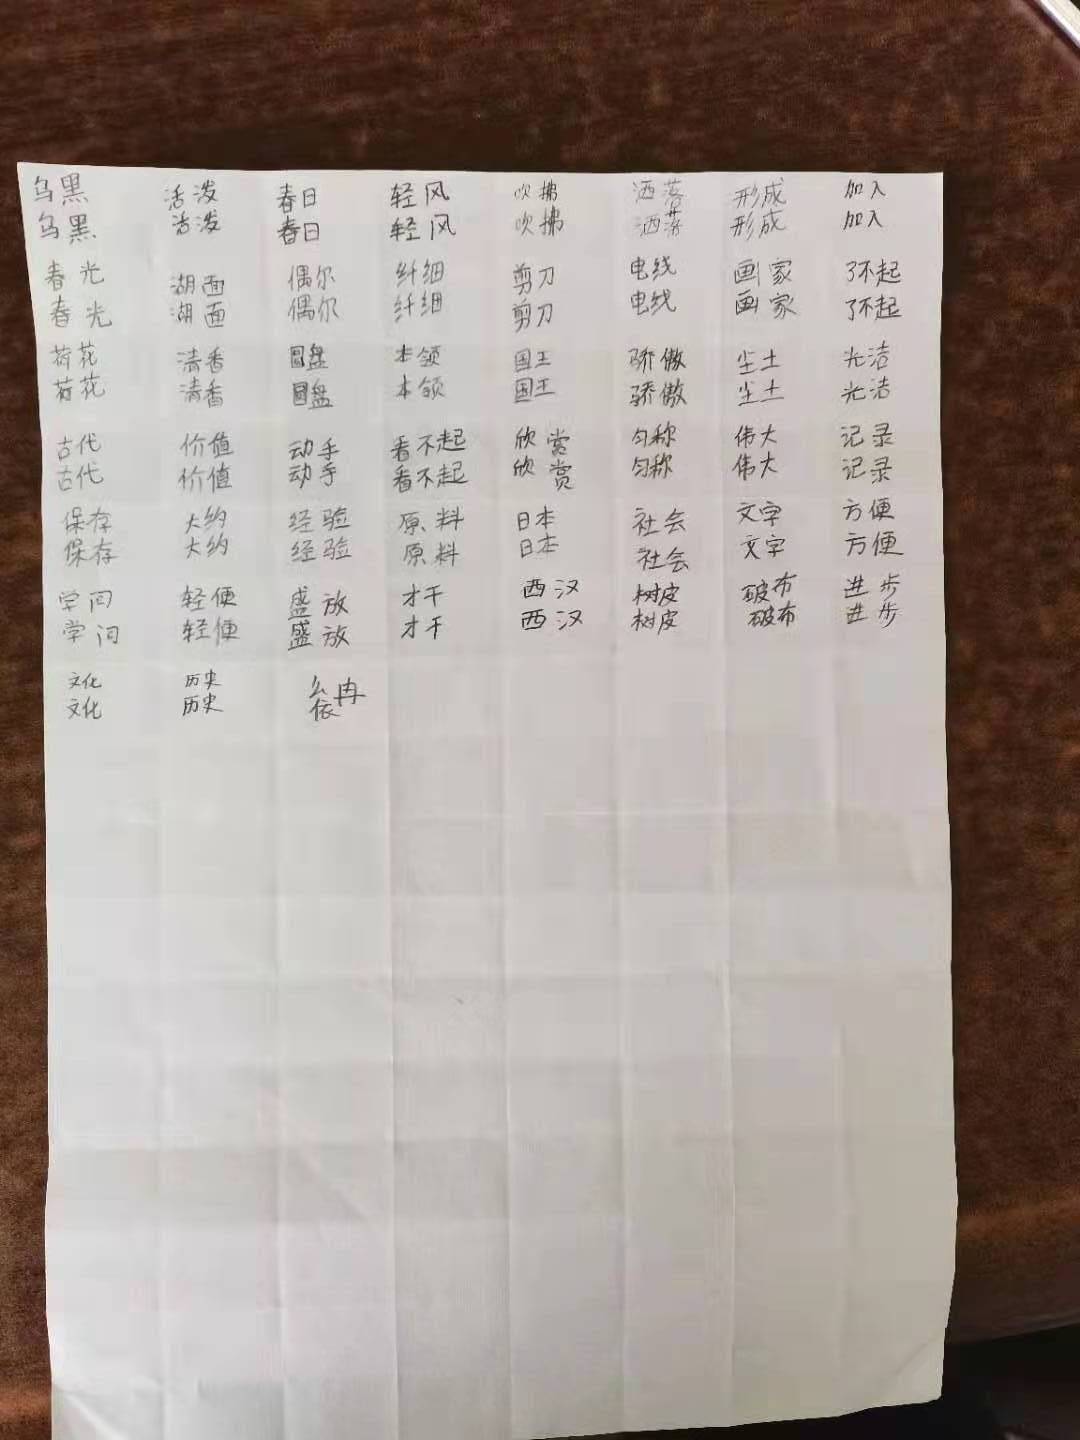 乌黑 活泼 春日 轻风 吹拂 洒落 形成 加入
乌黑 活泼 春日 轻风 吹拂 洒落 形成 加入
春光 湖面 偶尔 纤细 剪刀 电线 画家 了不起
春光 湖面 偶尔 纤细 剪刀 电线 画家 了不起
荷花 清香 圆盘 本领 国王 骄傲 尘土 光洁
荷花 清香 圆盘 本领 国王 骄傲 尘土 光洁
古代 价值 动手 看不起 欣赏 匀称 伟大 记录
古代 价值 动手 看不起 欣赏 匀称 伟大 记录
保存 大约 经验 原料 日本 社会 文字 方便
保存 大约 经验 原料 日本 社会 文字 方便
学问 轻便 盛放 才干 西汉 树皮 破布 进步
学问 轻便 盛放 才干 西汉 树皮 破布 进步
文化 历史
文化 历史 依冉